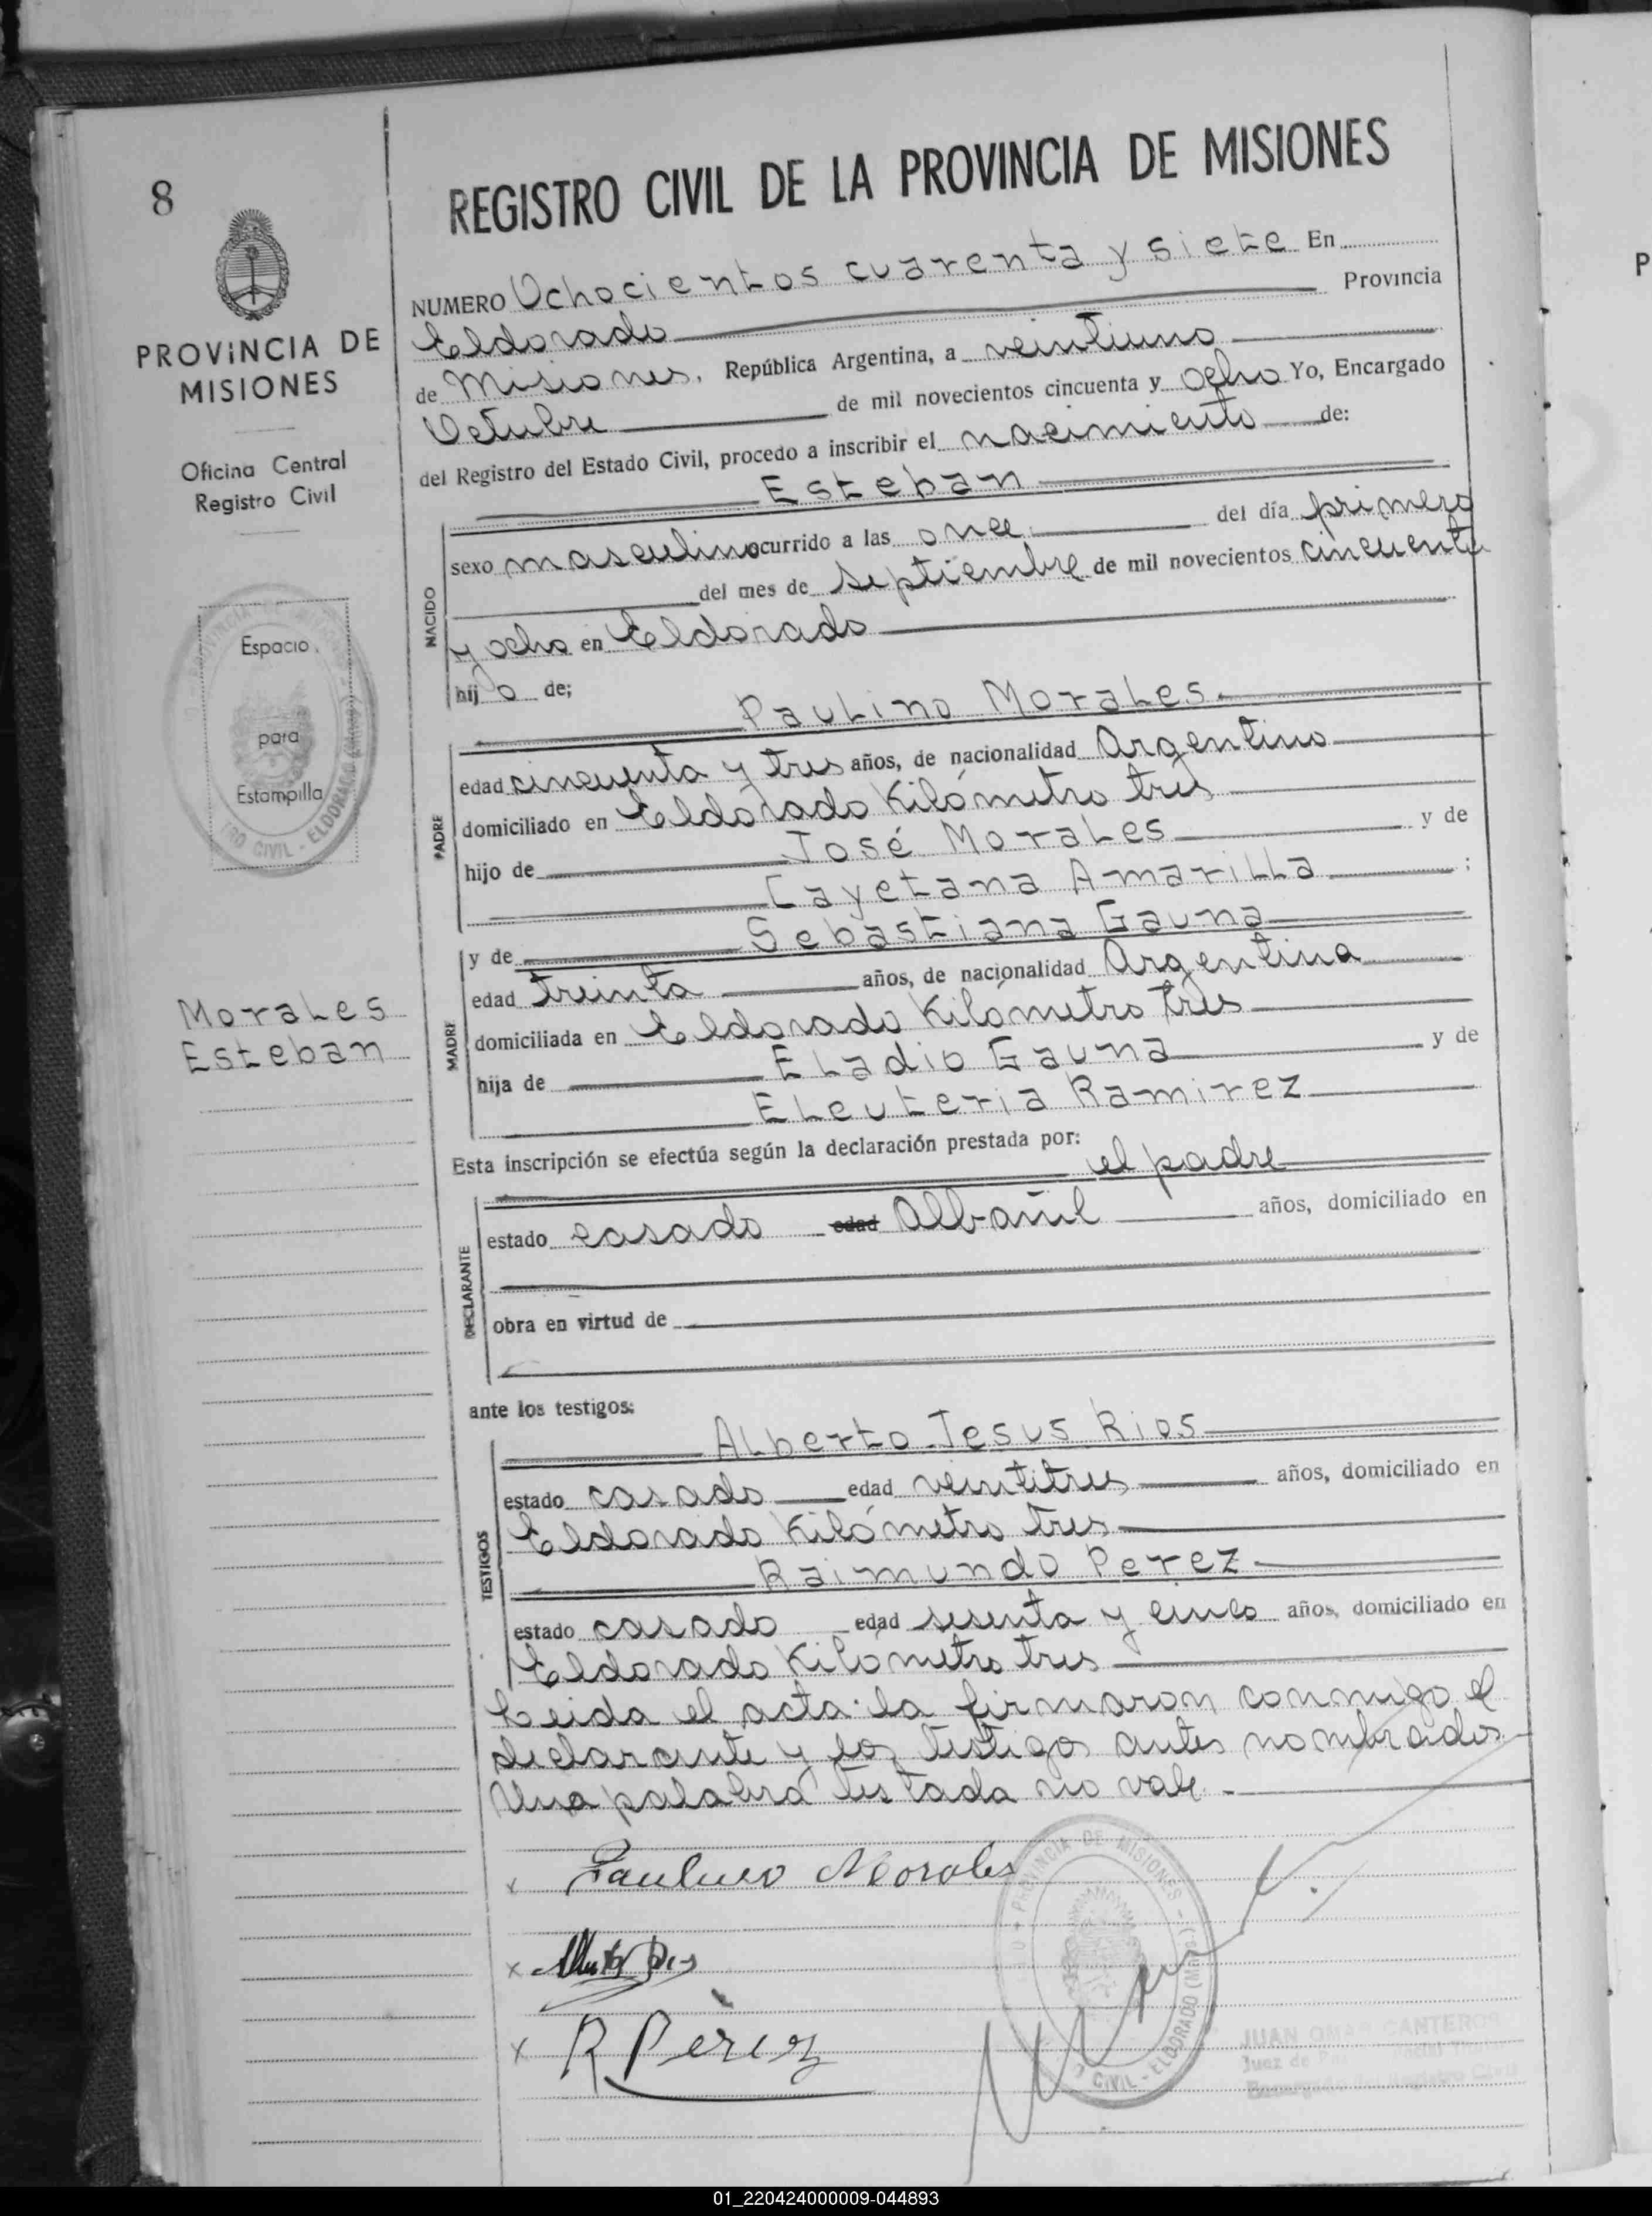 8
PROVINCIA DE
MISIONES
Oficina Central
Registro Civil
Espacio
para
Estampilla
Morales
Esteban
REGISTRO CIVIL DE LA PROVINCIA DE MISIONES
NUMERO Ochocientos cuarenta y siete En
Eldorado Provincia
de Misiones, República Argentina, a veintiuno
Octubre de mil novecientos cincuenta y ocho Yo, Encargado
del Registro del Estado Civil, procedo a inscribir el nacimiento de:
Esteban
NACIDO
sexo masculino ocurrido a las once del día primero
del mes de septiembre de mil novecientos cincuenta
y ocho en Eldorado
hijo de;
Paulino Morales
PADRE
edad cincuenta y tres años, de nacionalidad Argentino
domiciliado en Eldorado Kilómetro tres
hijo de José Morales y de
Cayetana Amarilla ;
y de Sebastiana Gauna
MADRE
edad treinta años, de nacionalidad Argentina
domiciliada en Eldorado Kilómetro tres
hija de Eladio Gauna y de
Eleuteria Ramirez
Esta inscripción se efectúa según la declaración prestada por:
el padre
DECLARANTE
estado casado edad Albañil años, domiciliado en
obra en virtud de
ante los testigos:
Alberto Jesus Rios
TESTIGOS
estado casado edad veintitres años, domiciliado en
Eldorado Kilómetro tres
Raimundo Perez
estado casado edad sesenta y cinco años, domiciliado en
Eldorado Kilómetro tres
Leida el acta la firmaron conmigo el
declarante y los testigos antes nombrados
Una palabra testada no vale.-
x Paulino Morales
x
x R Pérez
PROVINCIA DE MISIONES
CIVIL - ELDORADO (Mnes.)
JUAN OMAR CANTEROS
Juez de
Encargado del Registro Civil
01_220424000009-044893